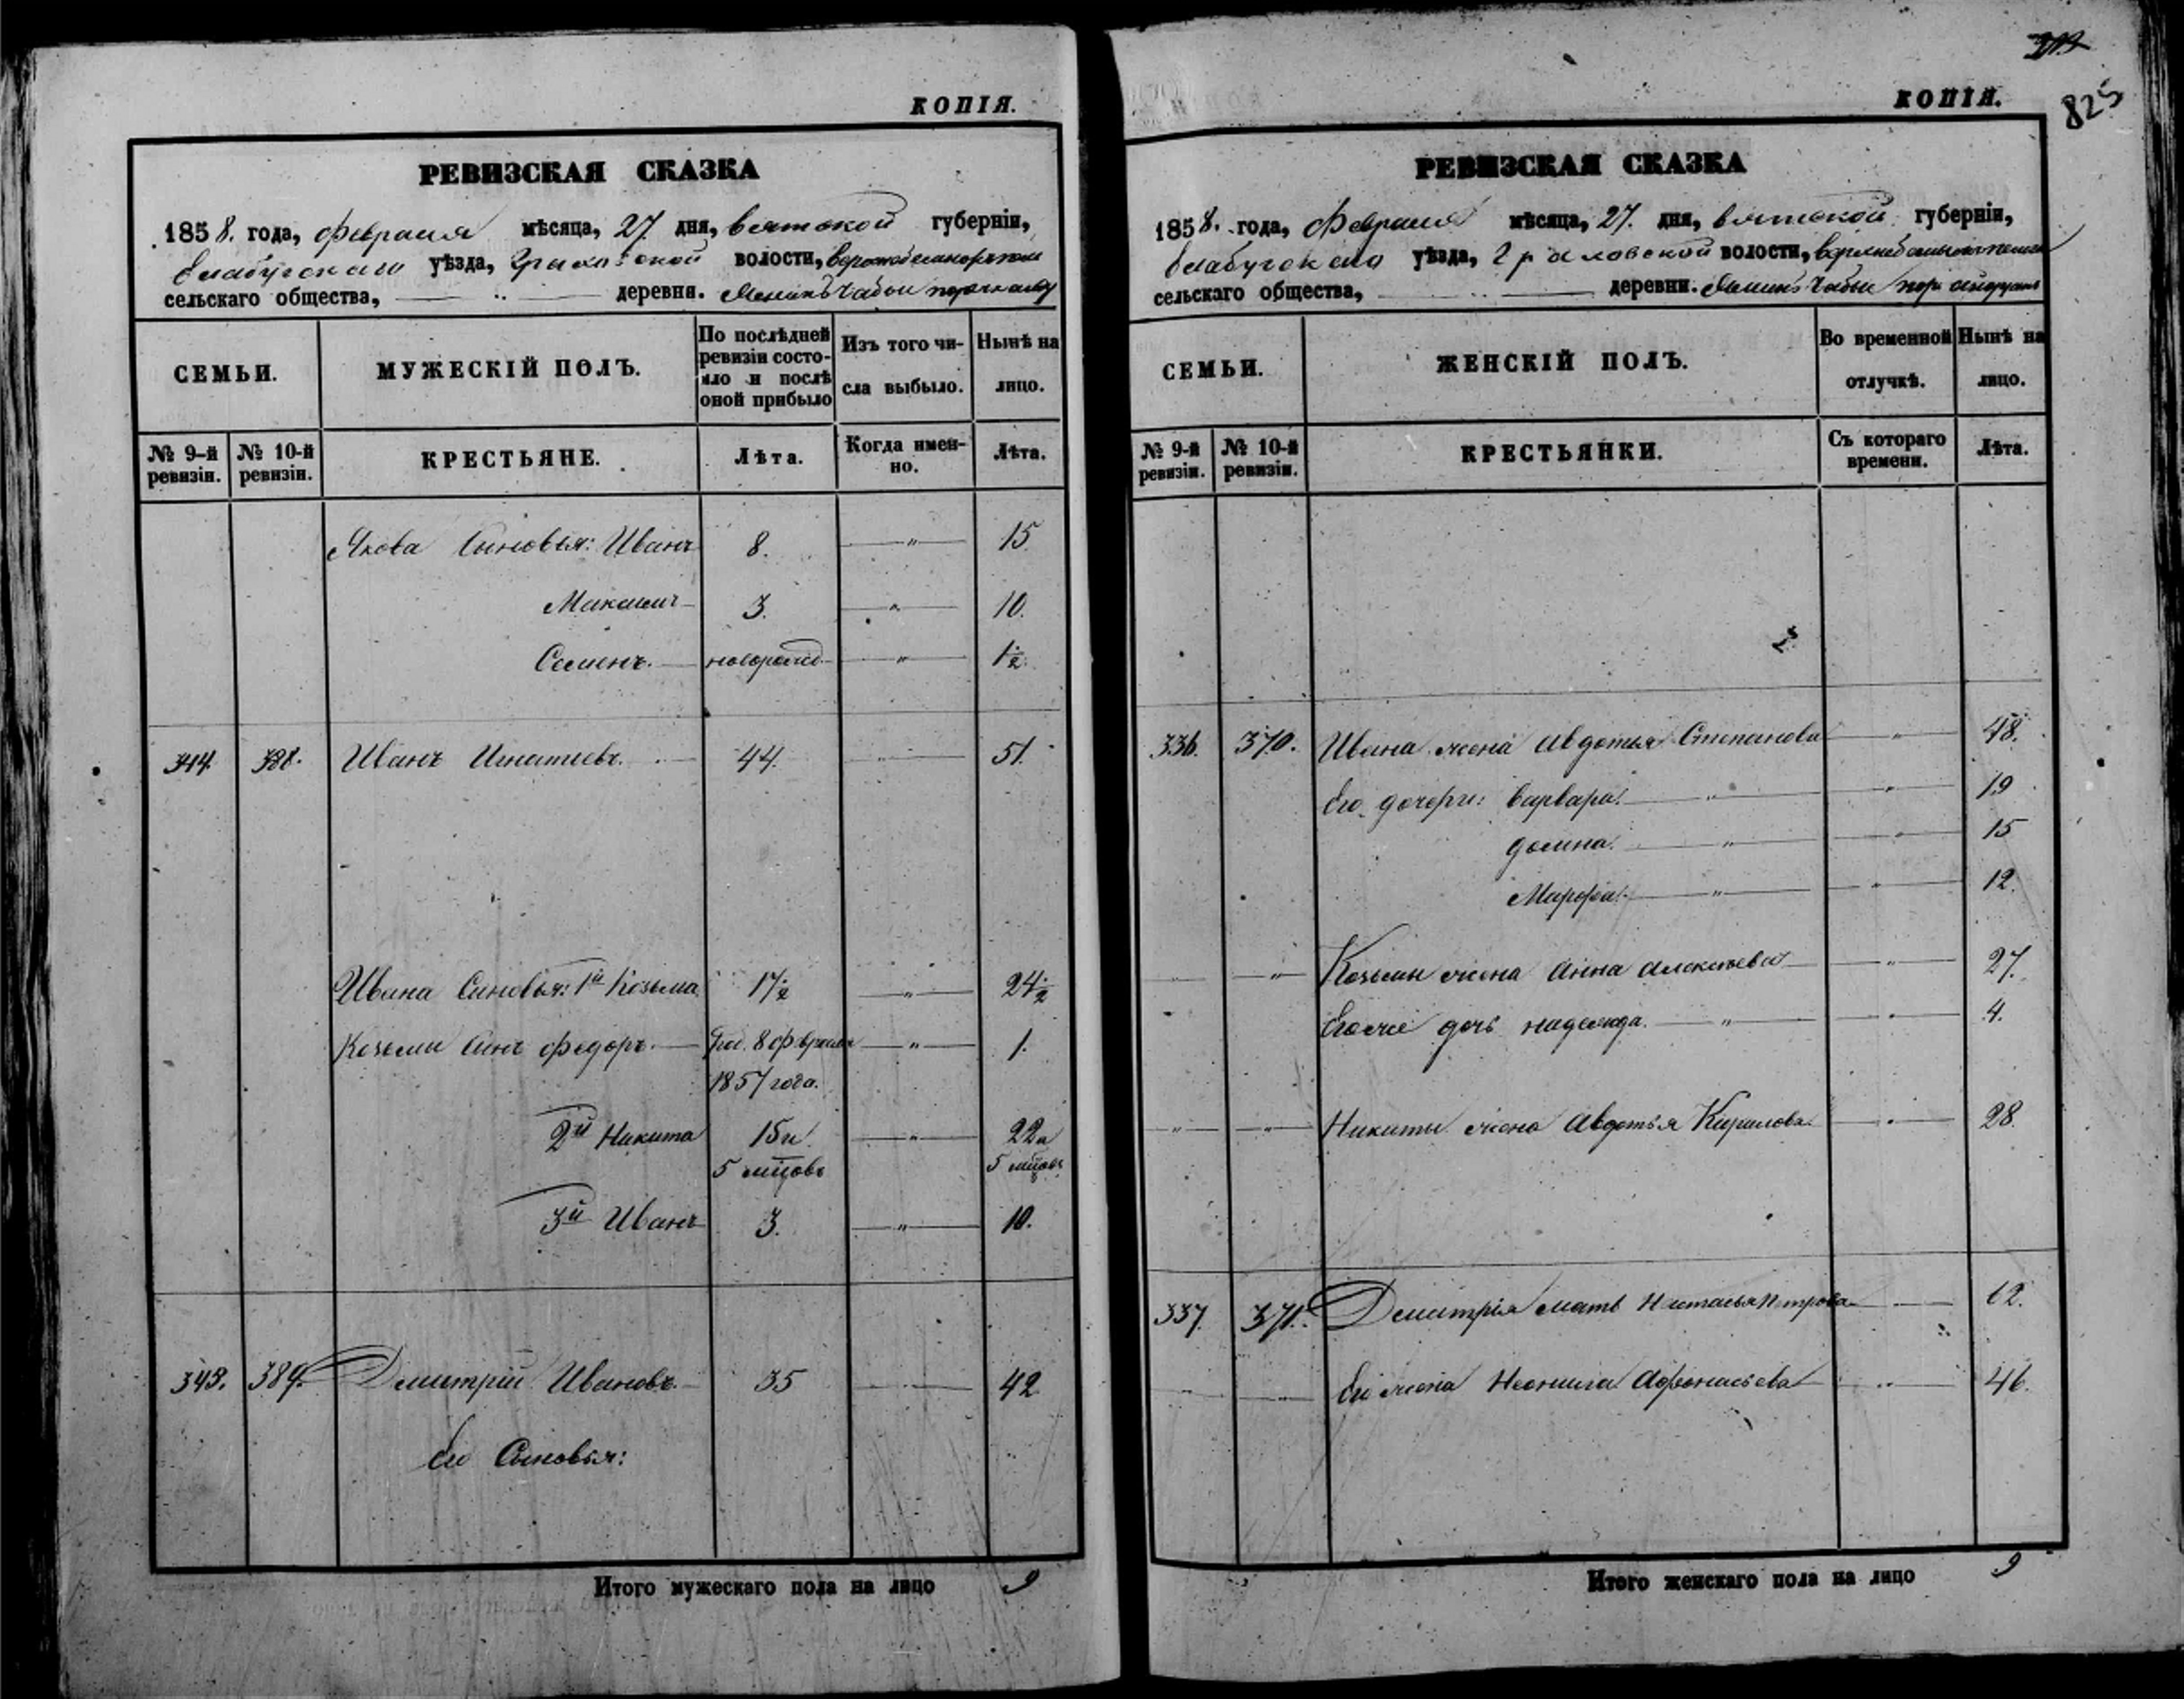 КОПІЯ.
РЕВИЗСКАЯ СКАЗКА
1858. года, Февраля мѣсяца, 27. дня, Вятской губерніи,
Елабугскаго уѣзда, Граховской волости,
сельскаго общества, — „ — деревни.
СЕМЬИ.
МУЖЕСКІЙ ПОЛЪ.
По послѣдней ревизіи состояло и послѣ оной прибыло
Изъ того числа выбыло.
Нынѣ на лицо.
№ 9-й ревизіи.
№ 10-й ревизіи.
КРЕСТЬЯНЕ.
Лѣта.
Когда именно.
Лѣта.
Якова Сыновья: Иванъ 8. — „ — 15.
Максимъ 3. — „ — 10.
Семенъ. — новорожд. — „ — 1/2.
344. 388. Иванъ Игнатьевъ. 44. — „ — 51.
Ивана Сыновья: 1й Козьма 17 1/2 — „ — 24 1/2
Козьмы Сынъ Федоръ. — Род. 8 Февраля — „ — 1.
1857 года.
2й Никита 15 и — „ — 22 и
5 мцовъ 5 мцовъ
3й Иванъ 3. — „ — 10.
345. 389. Дмитрій Ивановъ. 35 — „ — 42
Его Сыновья:
Итого мужескаго пола на лицо 9
825
КОПІЯ.
РЕВИЗСКАЯ СКАЗКА
1858. года, Февраля мѣсяца, 27. дня, Вятской губерніи,
Елабугскаго уѣзда, Граховской волости,
сельскаго общества, — „ — деревни.
СЕМЬИ.
ЖЕНСКІЙ ПОЛЪ.
Во временной отлучкѣ.
Нынѣ на лицо.
№ 9-й ревизіи.
№ 10-й ревизіи.
КРЕСТЬЯНКИ.
Съ котораго времени.
Лѣта.
336. 370. Ивана жена Авдотья Степанова — „ — 48.
Его дочери: Варвара. — „ — 19
Домна. — „ — 15
Марфа. — „ — 12.
„ — „ — Козьмы жена Анна Алексѣева — „ — 27.
Его же дочь Надежда. — „ — 4.
„ — „ — Никиты жена Авдотья Кирилова. — „ — 28.
337. 371. Дмитрія мать Настасья Петрова — „ —
Его жена Неонила Афонасьева — „ — 46.
Итого женскаго пола на лицо 9